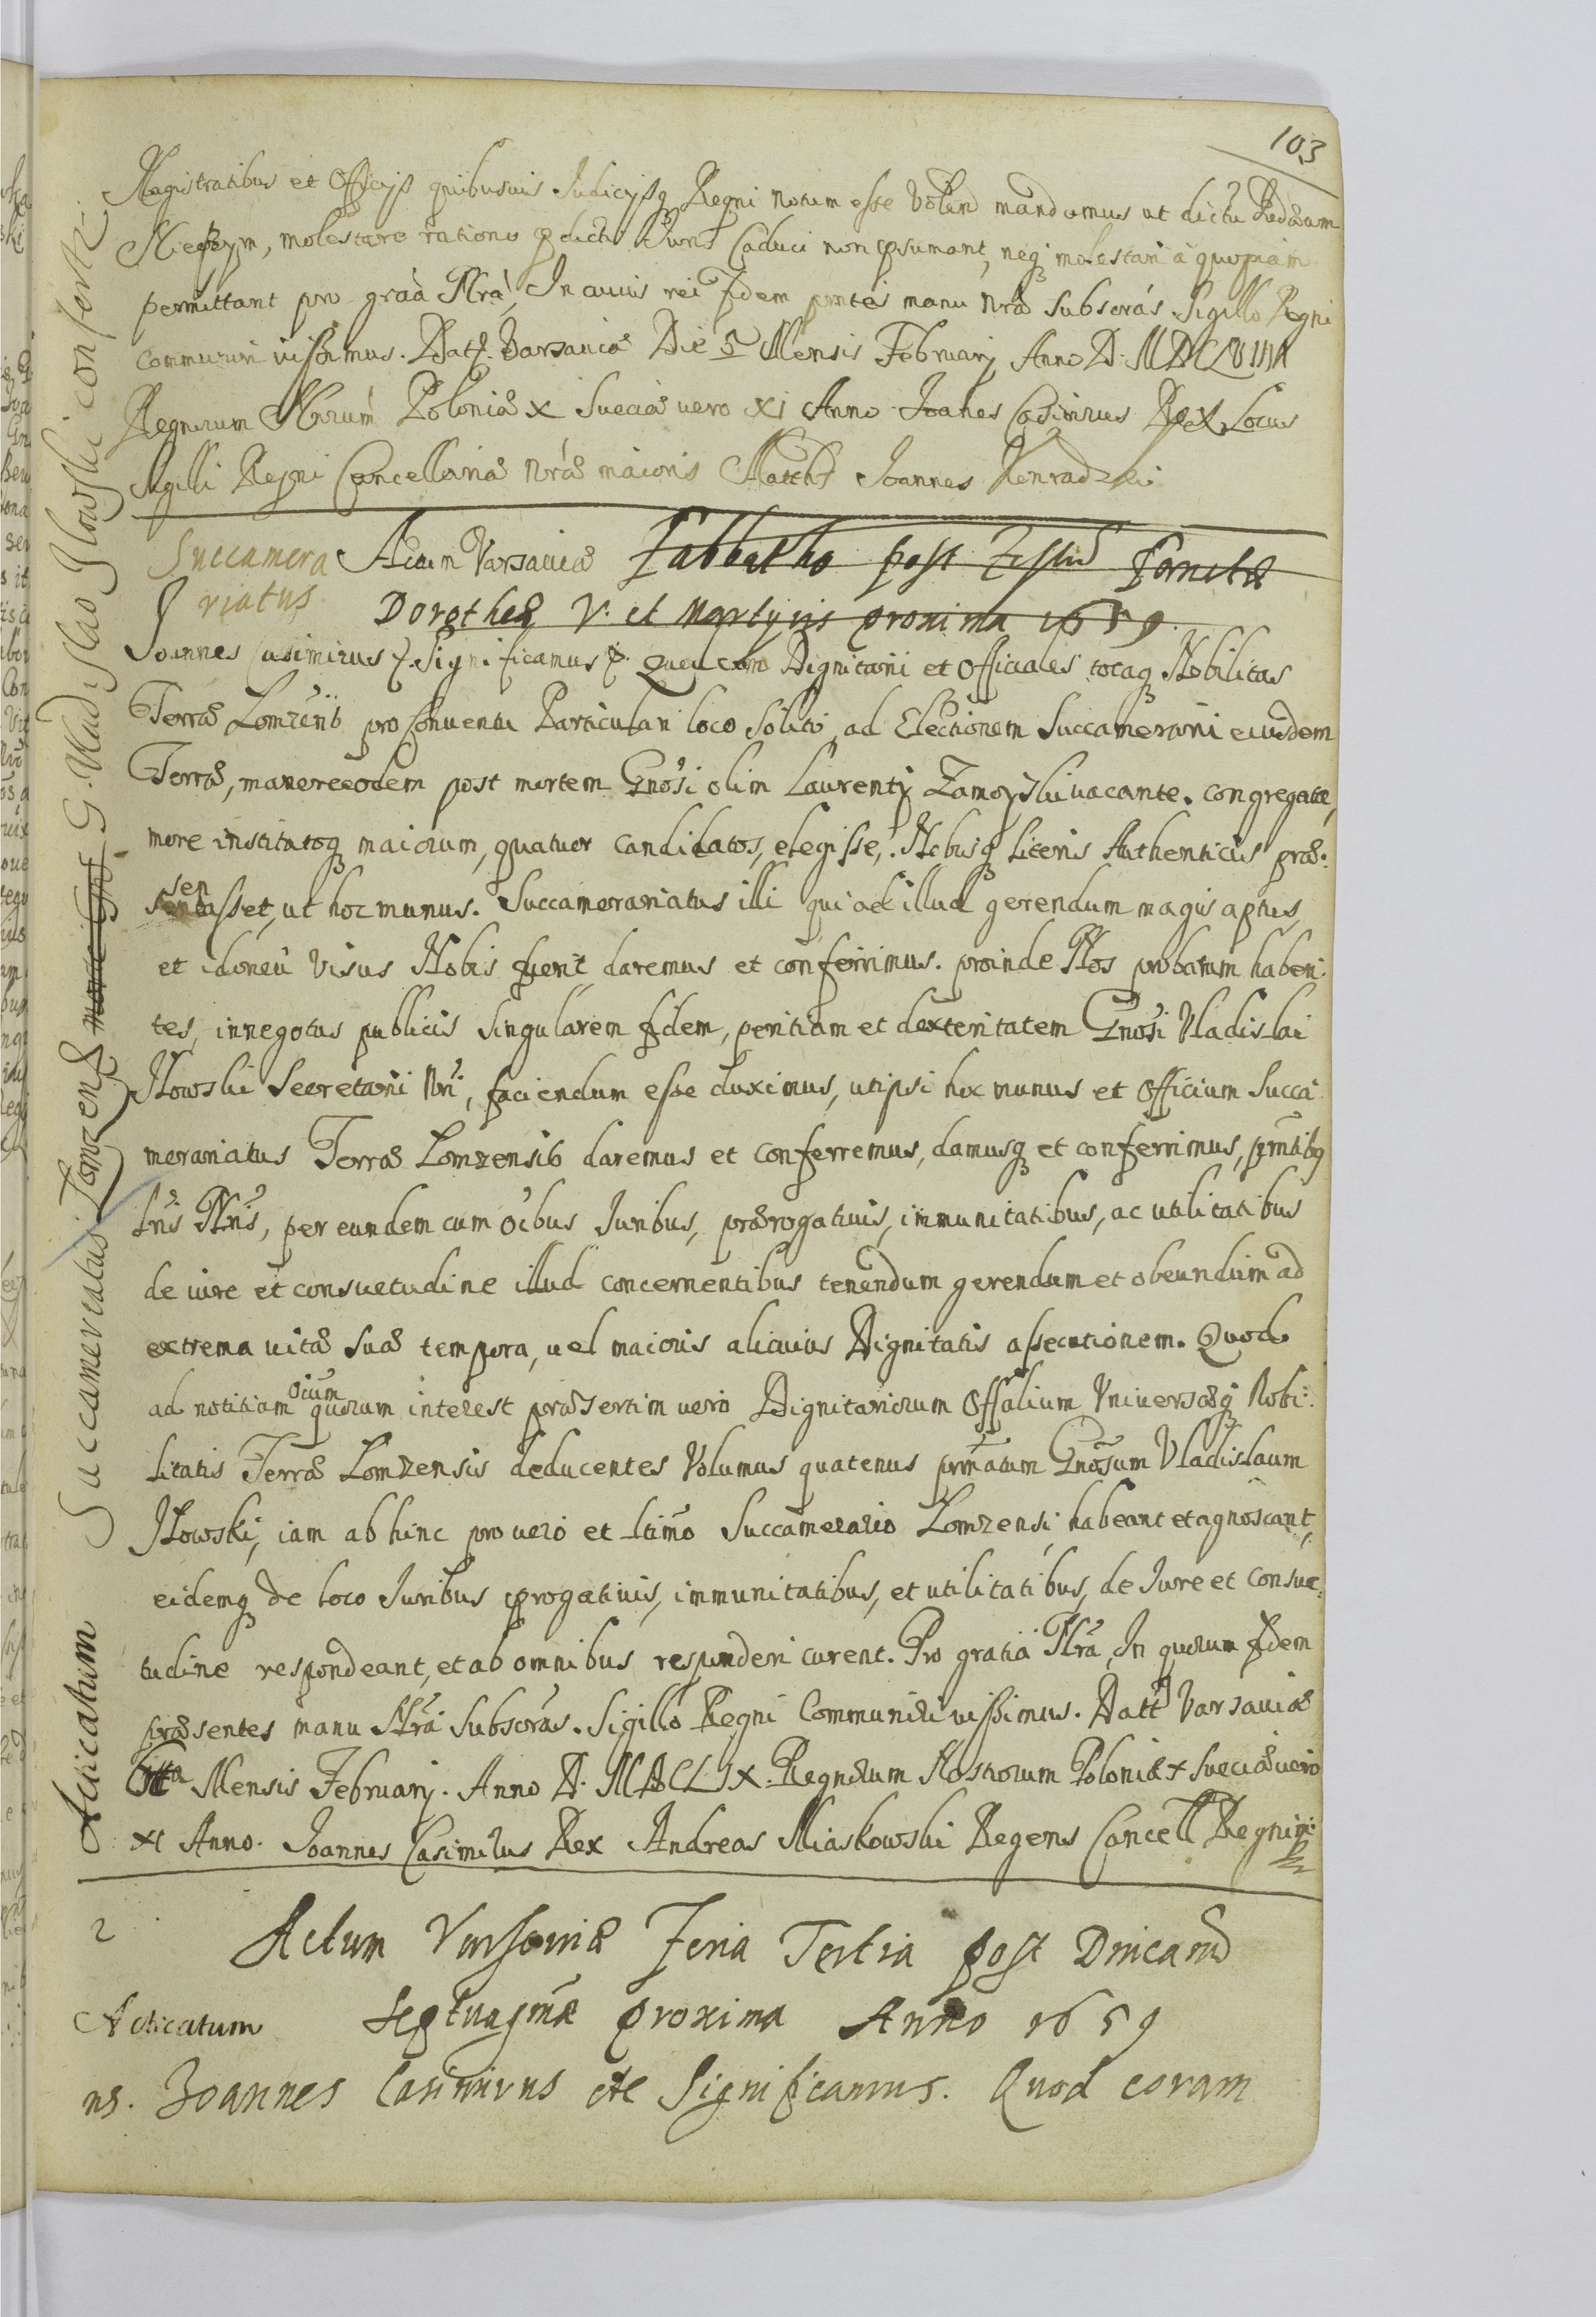 103
Magistratibus et Officijs quibusuis Judicijsq Regni notum esse Volen mandamus ut dictu
molestare ratione pdicti Juris Caduci non psumant, neq molestari à quopiam
permittant pro graà Nrà, In cuius rei fidem pntes manu nra subscras. Sigillo Regni
communiri iussimus. Datt. Varsauiæ Die 5 Mensis February Anno D. MDCLVIIII
Regnorum Nrorum Poloniæ X Sueciæ uero XI Anno Joannes Casimirus Rex Locus
Sigilli Regni Cancellariæ nræ maioris Joannes
Succamera
riatus
Actum Varsauiæ Sabbatho post Festum Sanctæ
Dorotheæ V. et Martyris proxima 1659.
Joannes Casimirus Significamus Quod cum Dignitarij et Officiales totaq Nobilitas
Terræ Lomzensis pro Conuentu Particulari loco solito, ad Electionem Succamerarij eiusdem
Terræ, munere eodem post mortem Gnosi olim Laurentij Zamoyski uacante. congregatæ,
more institutoq maiorum, quatuor candidatos, elegisse, Nobisq Literis Authenticis præ:
sentasset, ut hoc munus. Succamerariatus illi qui ad illud gerendum magis aptus,
et idoneũ visus Nobis fuerit daremus et conferrimus. proinde Nos probatam haben:
tes, in negotus publicis singularem fidem, peritiam et dexteritatem Gnosi Vladislai
Ilowski Secretarij Nri, faciendum esse duximus, ut ipsi hoc munus et Officium Succa
merariatus Terræ Lomzensis daremus et conferremus, damusq et conferrimus, pnntibq
Lris Nris, per eundem cum oibus Juribus, prærogatiuis, immunitatibus, ac utilitatibus
de iure et consuetudine illud concernentibus tenendum gerendum et obeundum ad
extrema uitæ suæ tempora, uel maioris alicuius Dignitatis assecutionem. Quod
ad notitiam oium quorum interest præsertim uero Dignitariorum Offalium Vniuersæq Nobi:
litatis Terræ Lomzensis deducentes Volumus quatenus prnatum Gnosum Vladislaum
Ilowski, iam ab hinc pro uero et Ltimo Succamerario Lomzensi habeant et agnoscant,
eidemq de loco Juribus progatiuis, immunitatibus, et utilitatibus, de Jure et Consue:
tudine respondeant, et ab omnibus responderi curent. Pro gratia Nrã, In quorum fidem
præsentes manu Nrã Subscras. Sigillo Regni Communiri iussimus. Datt Varsauiæ
Mensis February. Anno D. MDCLIX. Regnorum Nostrorum Poloniæ X Sueciæ uero
XI Anno. Joannes Casimirus Rex Andreas Miaskowski Regens Cancell Regni
Acticatum Succamerariatus Lomzens G. Vladislao Ilowski confertr.
2
Actum Varsouiæ Feria Tertia post Dnicam
Acticatum
Septuagmæ proxima Anno 1659
ns. Joannes Casimirus etc Significamus. Quod coram